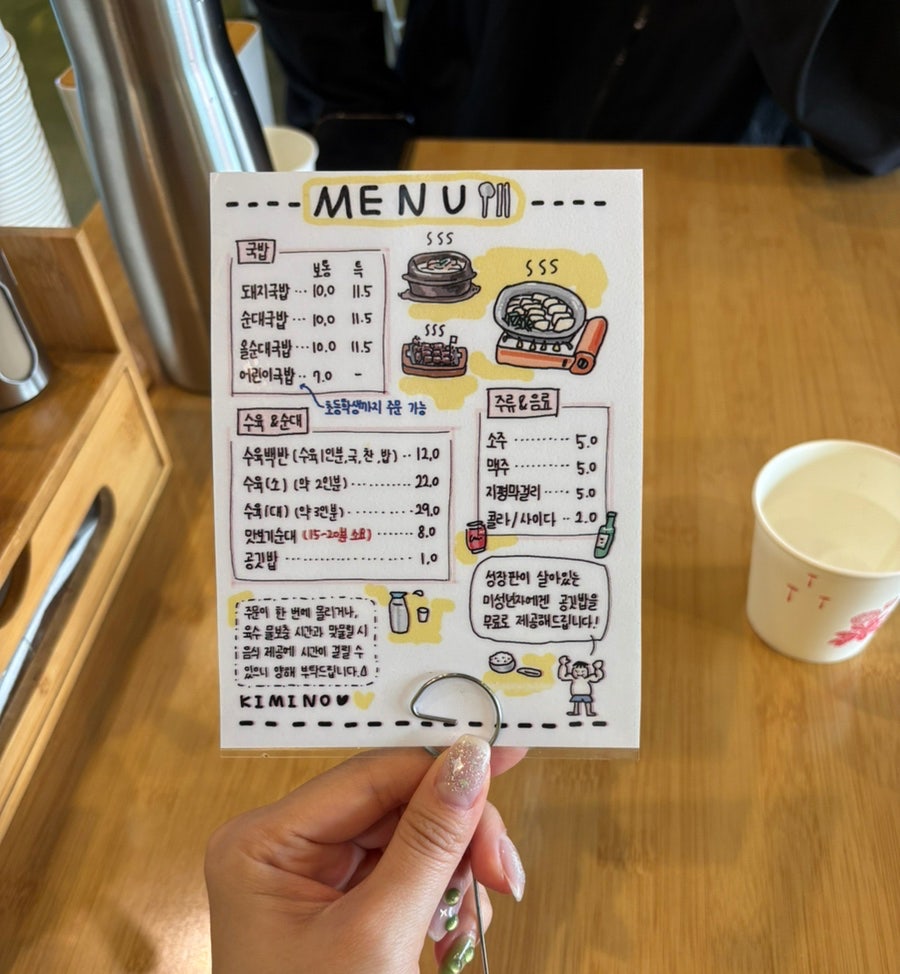 MENU
국밥
보통 특
돼지국밥 ··· 10.0 11.5
순대국밥 ··· 10.0 11.5
올순대국밥 ··· 10.0 11.5
어린이국밥 ·· 7.0 -
초등학생까지 주문 가능
수육 & 순대
수육백반 (수육1인분,국,찬,밥) ·· 12.0
수육(소) (약 2인분) ········· 22.0
수육(대) (약 3인분) ········· 29.0
맛보기순대 (15-20분 소요) ······ 8.0
공깃밥 ·················· 1.0
주류 & 음료
소주 ········· 5.0
맥주 ········· 5.0
지평막걸리 ····· 5.0
콜라/사이다 ·· 2.0
성장판이 살아있는
미성년자에겐 공깃밥을
무료로 제공해드립니다!
주문이 한 번에 몰리거나,
육수 물보충 시간과 맞물릴 시
음식 제공에 시간이 걸릴 수
있으니 양해 부탁드립니다.
KIMINO